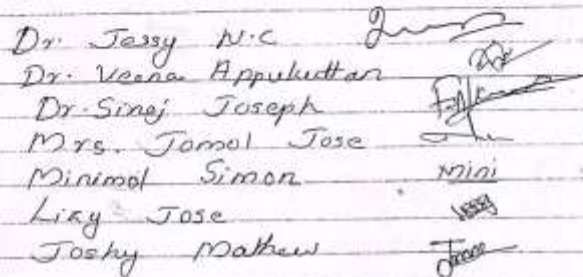 Dr. Jessy N.C
Dr. Veena Appukuttan
Dr. Sinej Joseph
Mrs. Jomol Jose
Minimol Simon mini
Joshy Mathew